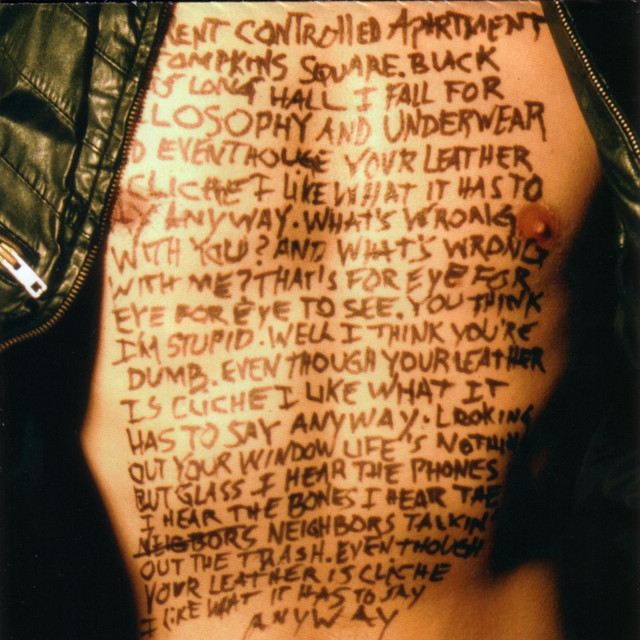 RENT CONTROLLED APARTMENT
TOMPKINS SQUARE. BLACK
LONG HALL I FALL FOR
LOSOPHY AND UNDERWEAR
EVENTHOUGE YOUR LEATHER
CLICHE I LIKE WHAT IT HAS TO
ANYWAY. WHAT'S WRONG
WITH YOU? AND WHAT'S WRONG
WITH ME? THAT IS FOR EYE FOR
EYE FOR EYE TO SEE. YOU THINK
IM STUPID. WELL I THINK YOU'RE
DUMB. EVEN THOUGH YOUR LEATHER
IS CLICHE I LIKE WHAT IT
HAS TO SAY ANYWAY. LOOKING
OUT YOUR WINDOW LIFE'S NOTHIN
BUT GLASS I HEAR THE PHONES
I HEAR THE BONES I HEAR THE
NEIGBORS NEIGHBORS TALKIN'
OUT THE TRASH. EVEN THOUGH
YOUR LEATHER IS CLICHE
I LIKE WHAT IT HAS TO SAY
ANYWAY